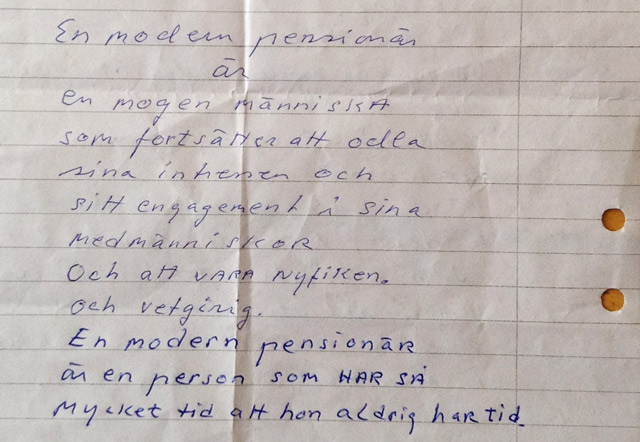 En modern pensionär
är
en mogen människa
som fortsätter att odla
sina intressen och
sitt engagement i sina
medmänniskor
Och att vara nyfiken.
och vetgirig.
En modern pensionär
är en person som har så
mycket tid att hon aldrig har tid